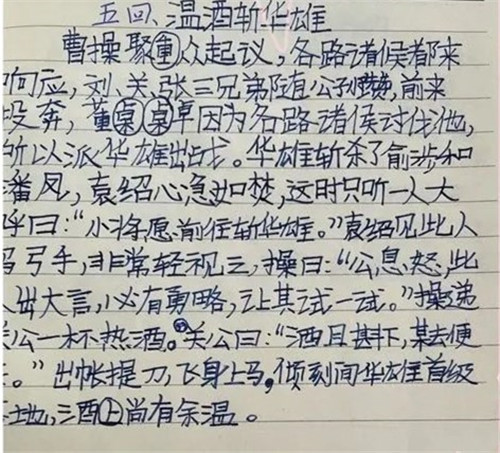 五回、温酒斩华雄
曹操聚重众起议,各路诸侯都来
响应,刘、关、张三兄弟随公孙瓒,前来
投奔,董桌桌卓因为各路诸侯讨伐他,
所以派华雄出战。华雄斩杀了俞涉和
潘凤,袁绍心急如焚,这时只听一人大
呼曰:“小将愿前往斩华雄。”袁绍见此人
马弓手,非常轻视之,操曰:“公息怒,此
人出大言,必有勇略,让其试一试。”操递
关公一杯热酒。关公曰:“酒且斟下,某去便
来。”出帐提刀,飞身上马,倾刻间华雄首级
落地,酒上尚有余温。